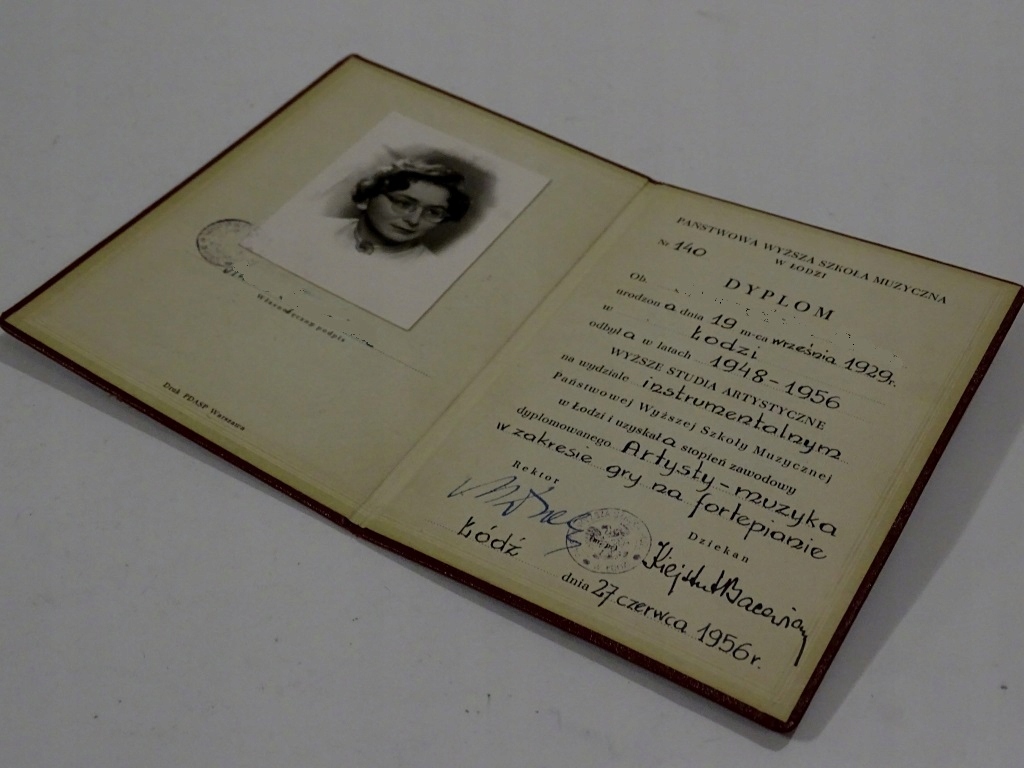 Własnoręczny podpis
Druk PDASP Warszawa
PAŃSTWOWA WYŻSZA SZKOŁA MUZYCZNA
W ŁODZI
Nr 140
DYPLOM
Ob.
urodzona dnia 19 m-ca września 1929r.
w Łodzi
odbyła w latach 1948-1956
WYŻSZE STUDIA ARTYSTYCZNE
na wydziale instrumentalnym
Państwowej Wyższej Szkoły Muzycznej
w Łodzi i uzyskała stopień zawodowy
dyplomowanego Artysty-muzyka
w zakresie gry na fortepianie
Rektor
Dziekan
Kiejstut Bacewicz
Łódź dnia 27 czerwca 1956r.